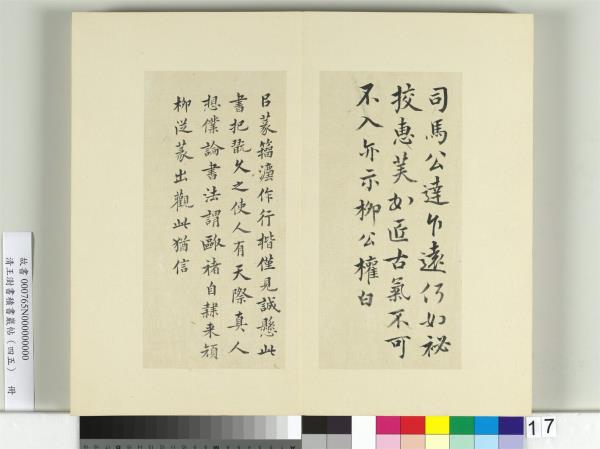 司馬公達乍遠仍如祕
挍惠芙如匠古氣不可
不入亦示柳公權白
㠯篆籀灋作行楷僅見誠懸此
書把翫久之使人有天際真人
想僕論書法謂歐褚自隸来顏
柳從篆出觀此猶信
故書 000765N000000000
清王澍書積書巖帖（四五） 冊
17